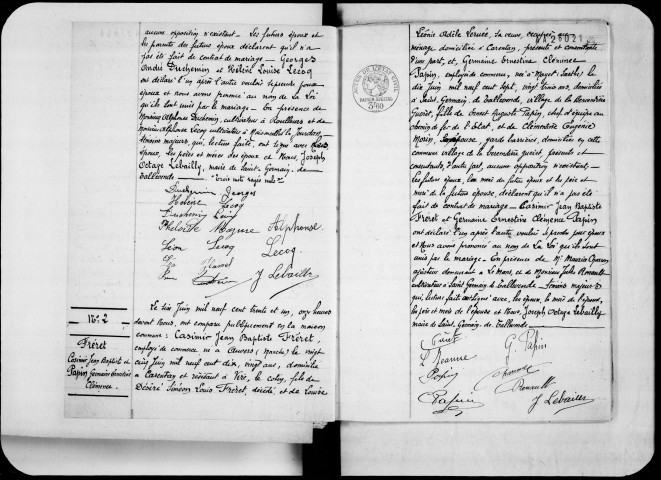 aucune opposition n'existant. Les futurs époux et
les parents des futurs époux déclarent qu'il n'a
pas été fait de contrat de mariage. Georges
André Duchemin et Hélène Louise Lecoq
ont déclaré l'un après l'autre vouloir se prendre pour
époux et nous avons prononcé au nom de la Loi
qu'ils sont unis par le mariage. En présence de
Alphonse Duchemin, cultivateur à Roullours et de
Alphonse Lecoq cultivateur à
témoins majeurs, qui, lecture faite, ont signé avec les
époux, les pères et mères des époux et Nous, Joseph
Octave Lebailly, maire de Saint-Germain-de-
Tallevende.
Duchemin Georges
Hélène Lecoq
Duchemin
Alphonse
Léon Lecoq Lecoq
J Lebailly
N° 2
Fréret
Casimir Jean Baptiste et
Papin Germaine Ernestine
Clémence
Le six Juin mil neuf cent trente et un, onze heures
devant Nous, ont comparu publiquement en la maison
commune : Casimir Jean Baptiste Fréret,
employé de commerce né à Auvers (Manche) le vingt
cinq Juin mil neuf cent dix, vingt ans, domicilié
à Carentan et résidant à Vire, fils de
Désiré Siméon Louis Fréret, décédé, et de Louise
Léonie Adèle sa veuve,
ménage domiciliée à Carentan, présente et consentante
d'une part, et, Germaine Ernestine Clémence
Papin, employée de commerce, née à Mayet (Sarthe) le
dix Juin mil neuf cent sept, vingt trois ans, domiciliée
à Saint Germain de Tallevende, village de la
fille de Ernest Auguste Papin, chef d'équipe au
chemin de fer de l'Etat, et de Clémentine Eugénie
Morin, garde barrières, domiciliés en cette
commune village de la présents et
consentants, d'autre part, aucune opposition n'existant.
Les futurs époux, la mère du futur époux et les père et
mère de la future épouse, déclarent qu'il n'a pas été
fait de contrat de mariage. Casimir Jean Baptiste
Fréret et Germaine Ernestine Clémence Papin
ont déclaré l'un après l'autre vouloir se prendre pour époux
et Nous avons prononcé au nom de la Loi qu'ils sont
unis par le mariage. En présence de Mr Maurice
ajusteur demeurant à Le Mans, et de Monsieur Jules Renault
cultivateur à Saint Germain de Tallevende. témoins majeurs
qui, lecture faite ont signé avec les époux, la mère de l'époux,
les père et mère de l'épouse et Nous, Joseph Octave Lebailly
maire de Saint-Germain-de-Tallevende.
G. Papin
Papin
Renault
Papin J Lebailly